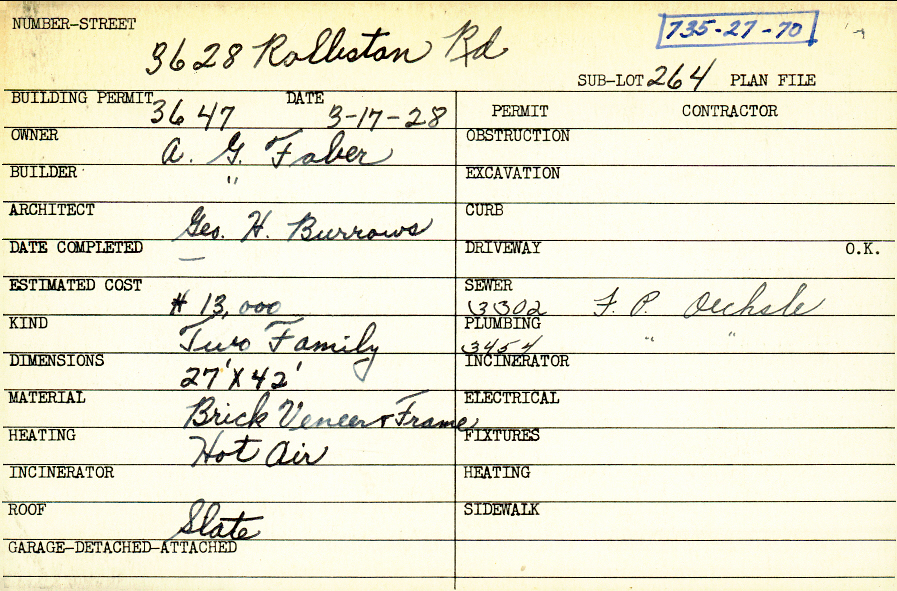 NUMBER-STREET
3628 Rolliston Rd
735-27-70
SUB-LOT 264 PLAN FILE
BUILDING PERMIT 3647 DATE 3-17-28
PERMIT CONTRACTOR
OWNER A. G. Faber
OBSTRUCTION
BUILDER "
EXCAVATION
ARCHITECT Geo. H. Burrows
CURB
DATE COMPLETED —
DRIVEWAY O.K.
ESTIMATED COST $ 13,000
SEWER 3302 F. P. Oechsle
KIND Two Family
PLUMBING 3454 " "
DIMENSIONS 27' X 42'
INCINERATOR
MATERIAL Brick Veneer & Frame
ELECTRICAL
HEATING Hot Air
FIXTURES
INCINERATOR
HEATING
ROOF Slate
SIDEWALK
GARAGE-DETACHED-ATTACHED